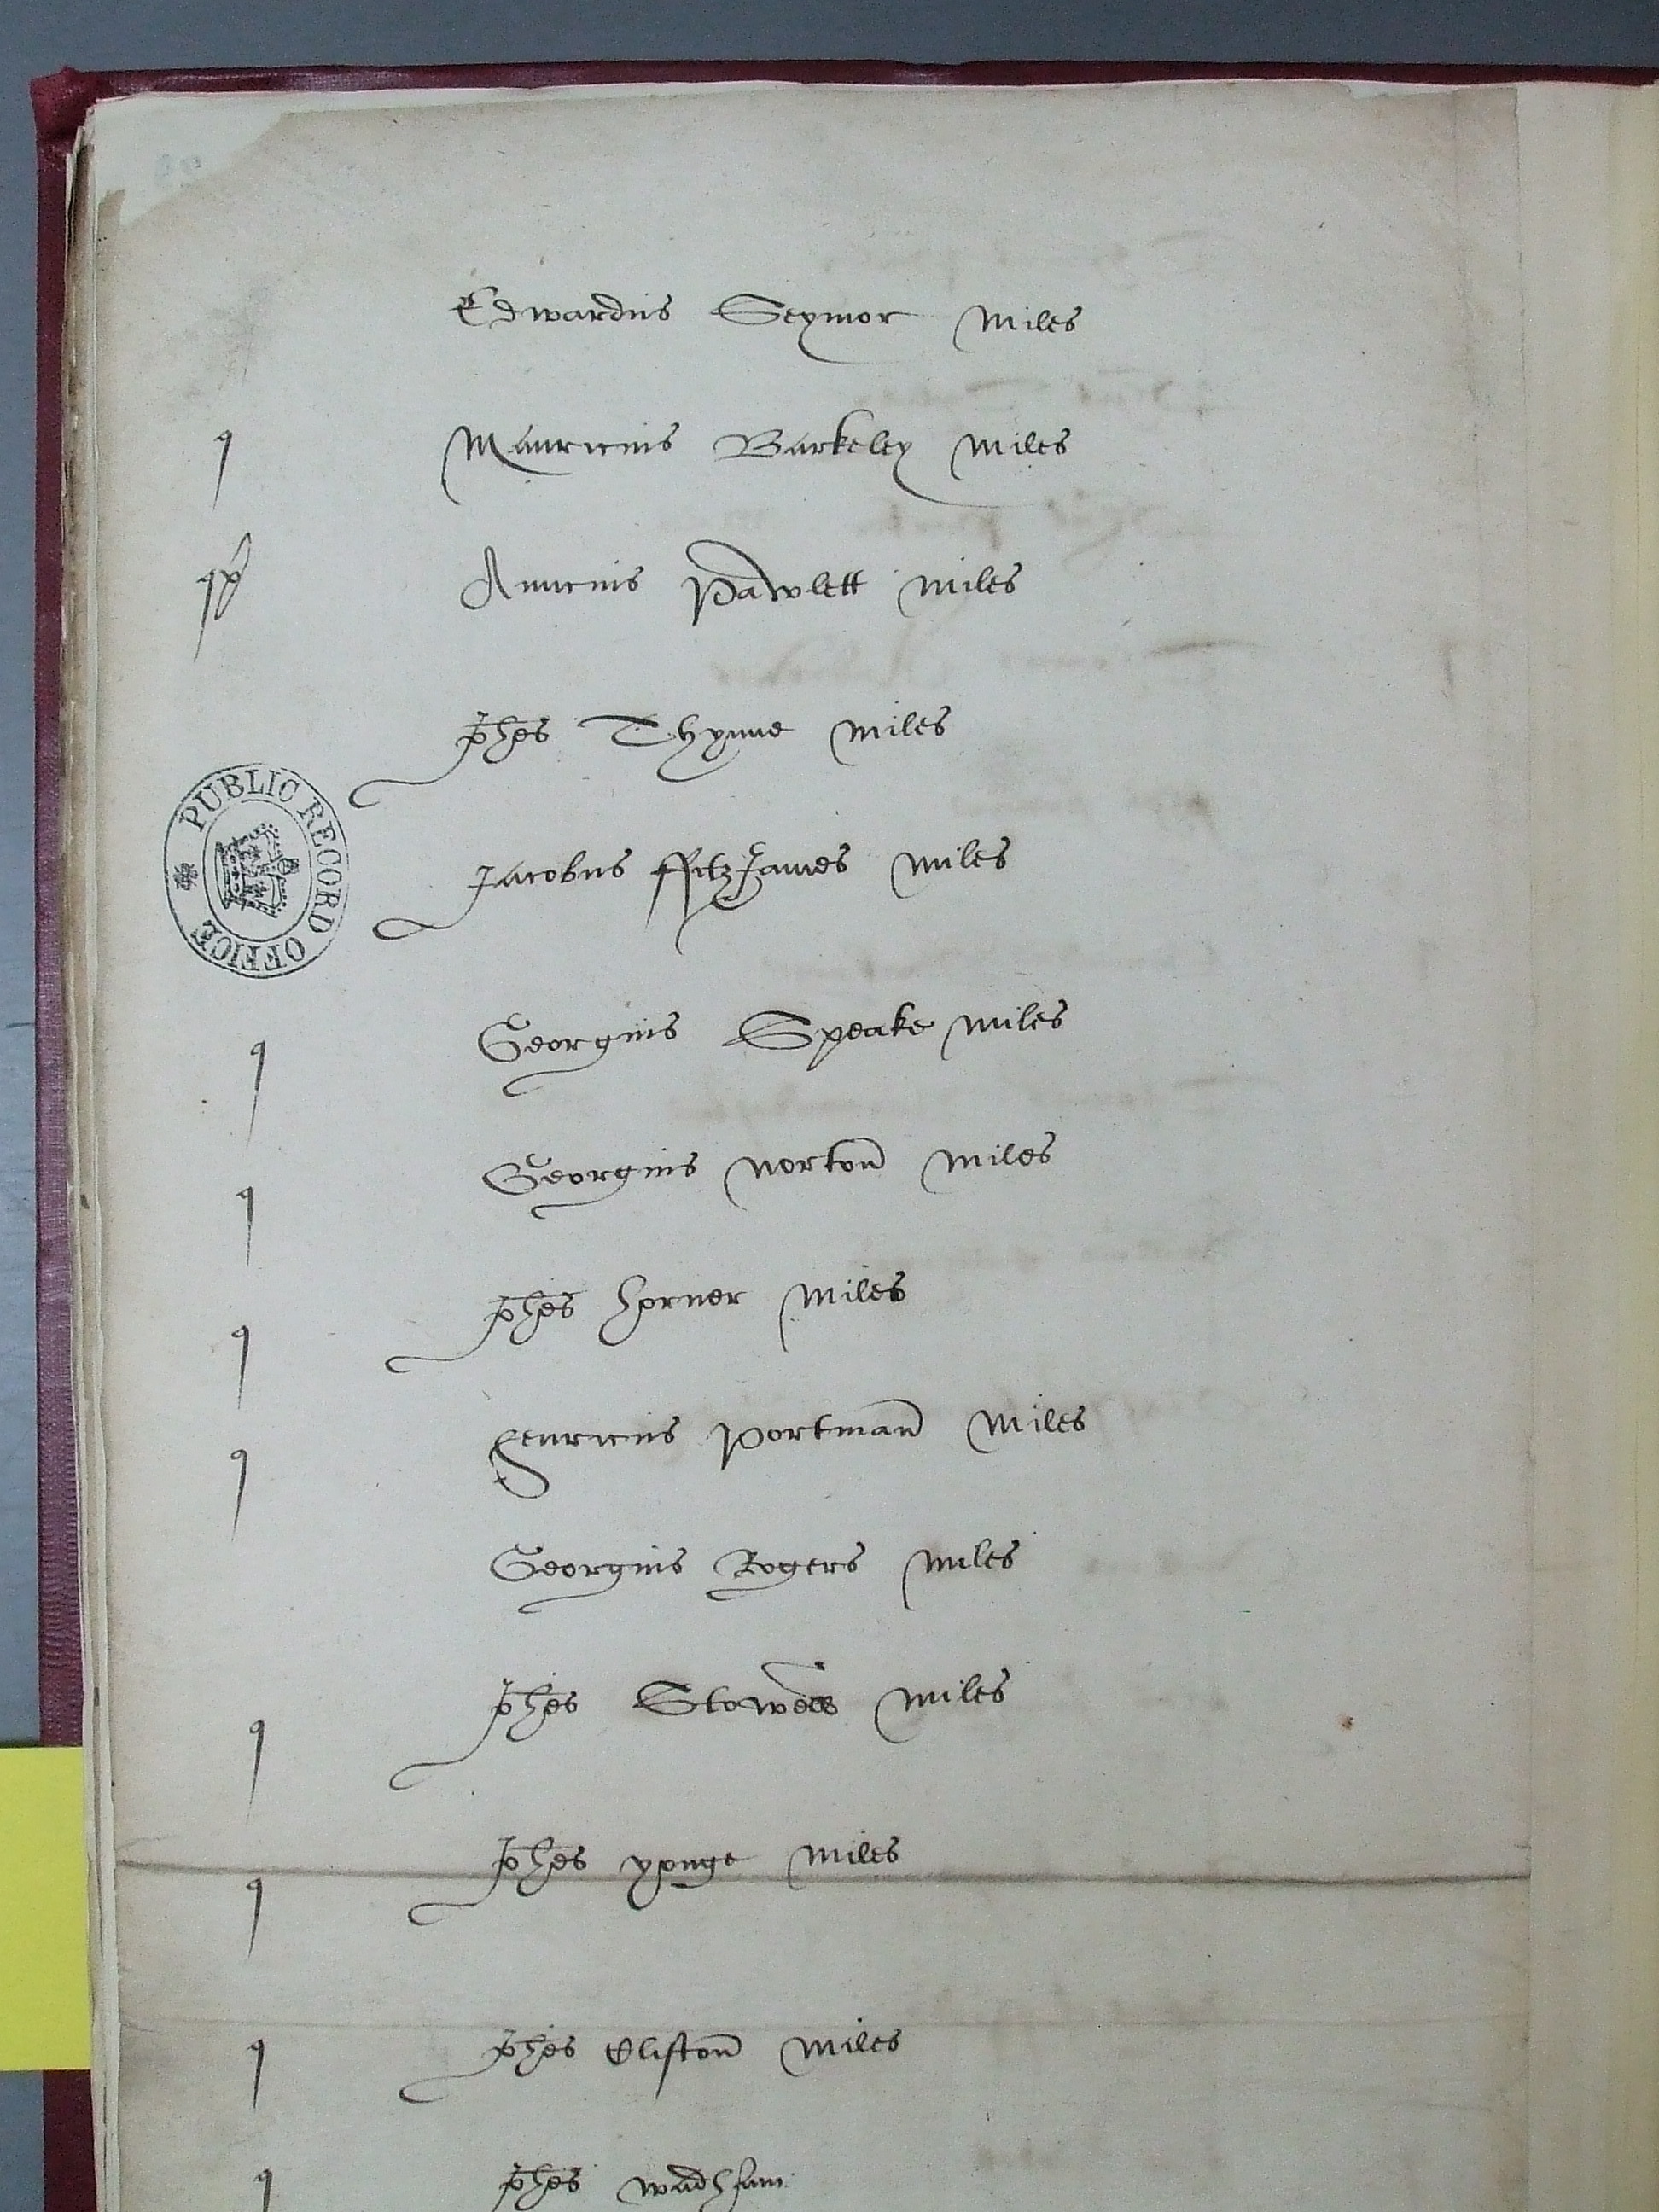 Edwardus Seymor Miles
q Mauricius Barkeley Miles
qp Amicius Pawlett Miles
Johes Thynne Miles
PUBLIC RECORD OFFICE
Jacobus ffitzJames Miles
q Georgius Speake Miles
q Georgius Norton Miles
q Johes Horner Miles
q Henricus Portman Miles
Georgius Rogers Miles
q Johes Stowell Miles
q Johes Yonge Miles
q Johes Clifton Miles
q Johes Wadham